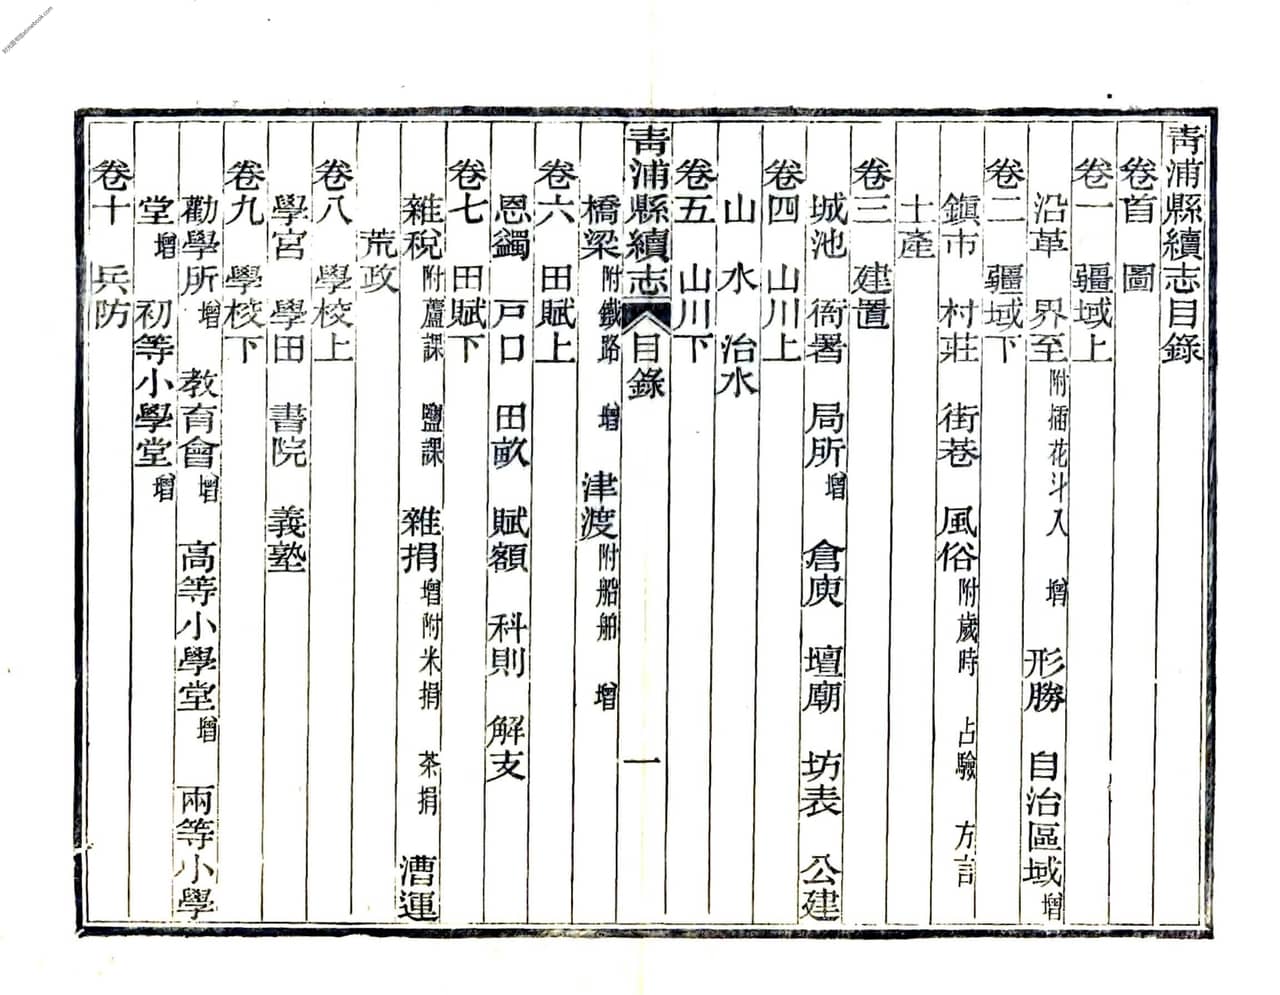 青浦縣續志目錄
卷首 圖
卷一 疆域上
沿革 界至附插花斗入 增 形勝 自治區域增
卷二 疆域下
鎮市 村莊 街巷 風俗附歲時 占驗 方言
土產
卷三 建置
城池 衙署 局所增 倉庾 壇廟 坊表 公建
卷四 山川上
山 水 治水
卷五 山川下
青浦縣續志 目錄 一
橋梁附鐵路 增 津渡附船舶 增
卷六 田賦上
恩蠲 戸口 田畝 賦額 科則 解支
卷七 田賦下
雜稅附蘆課 鹽課 雜捐增附米捐 茶捐 漕運
荒政
卷八 學校上
學宮 學田 書院 義塾
卷九 學校下
勸學所增 教育會增 高等小學堂增 兩等小學
堂增 初等小學堂增
卷十 兵防